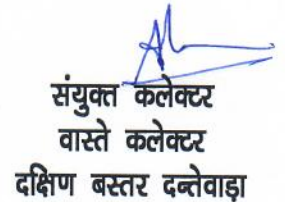 संयुक्त कलेक्टर
वास्ते कलेक्टर
दक्षिण बस्तर दन्तेवाड़ा